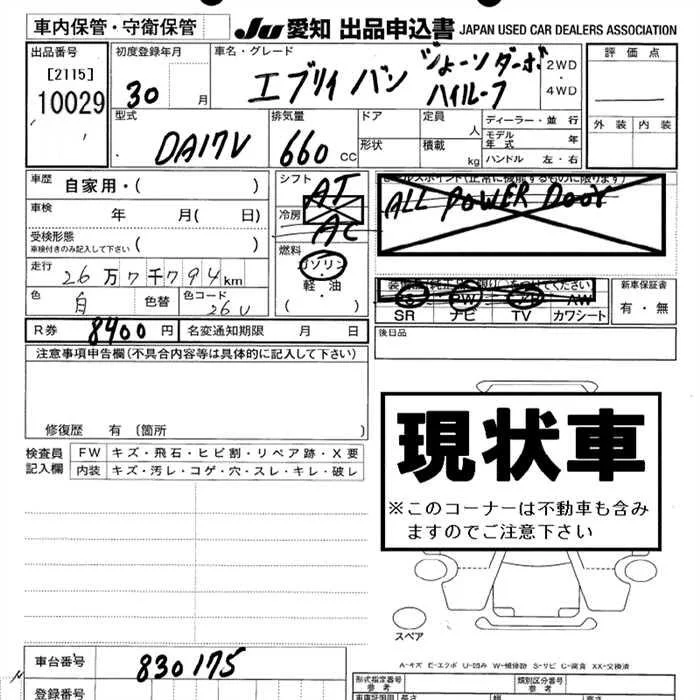 車内保管・守衛保管
JU 愛知 出品申込書 JAPAN USED CAR DEALERS ASSOCIATION
出品番号
[2115]
10029
初度登録年月
30 月
車名・グレード
エブリィ バン ジョーンターボ
ハイルーフ
2WD
・
4WD
評価点
外装 内装
型式
DA17V
排気量
660 cc
ドア
形状
定員
人
積載
kg
ディーラー・並行
モデル年式 年
ハンドル 左・右
車歴 自家用・( )
シフト
AT
車検 年 月( 日)
冷房
AC
受検形態
車検付きのみ記入して下さい ( )
燃料
ガソリン
・
軽・油
( )
走行 26万7千794km
色 白 色替 色コード 26U
セールスポイント(正常に機能するものに限ります)
ALL POWER DOOR
新車保証書
有・無
PS PW AW
SR ナビ TV カワシート
R券 8400円 名変通知期限 月 日
後日品
注意事項申告欄(不具合内容等は具体的に記入して下さい)
修復歴 有 〔箇所 〕
検査員
記入欄
FW キズ・飛石・ヒビ割・リペア跡・X要
内装 キズ・汚レ・コゲ・穴・スレ・キレ・破レ
現状車
※このコーナーは不動車も含み
ますのでご注意下さい
スペア
A-キズ E-エクボ U-凹み W-補修跡 S-サビ C-腐食 XX-交換済
車台番号 830175
登録番号
形式指定番号
参考
類別区分番号
参考
長さ
幅
高さ